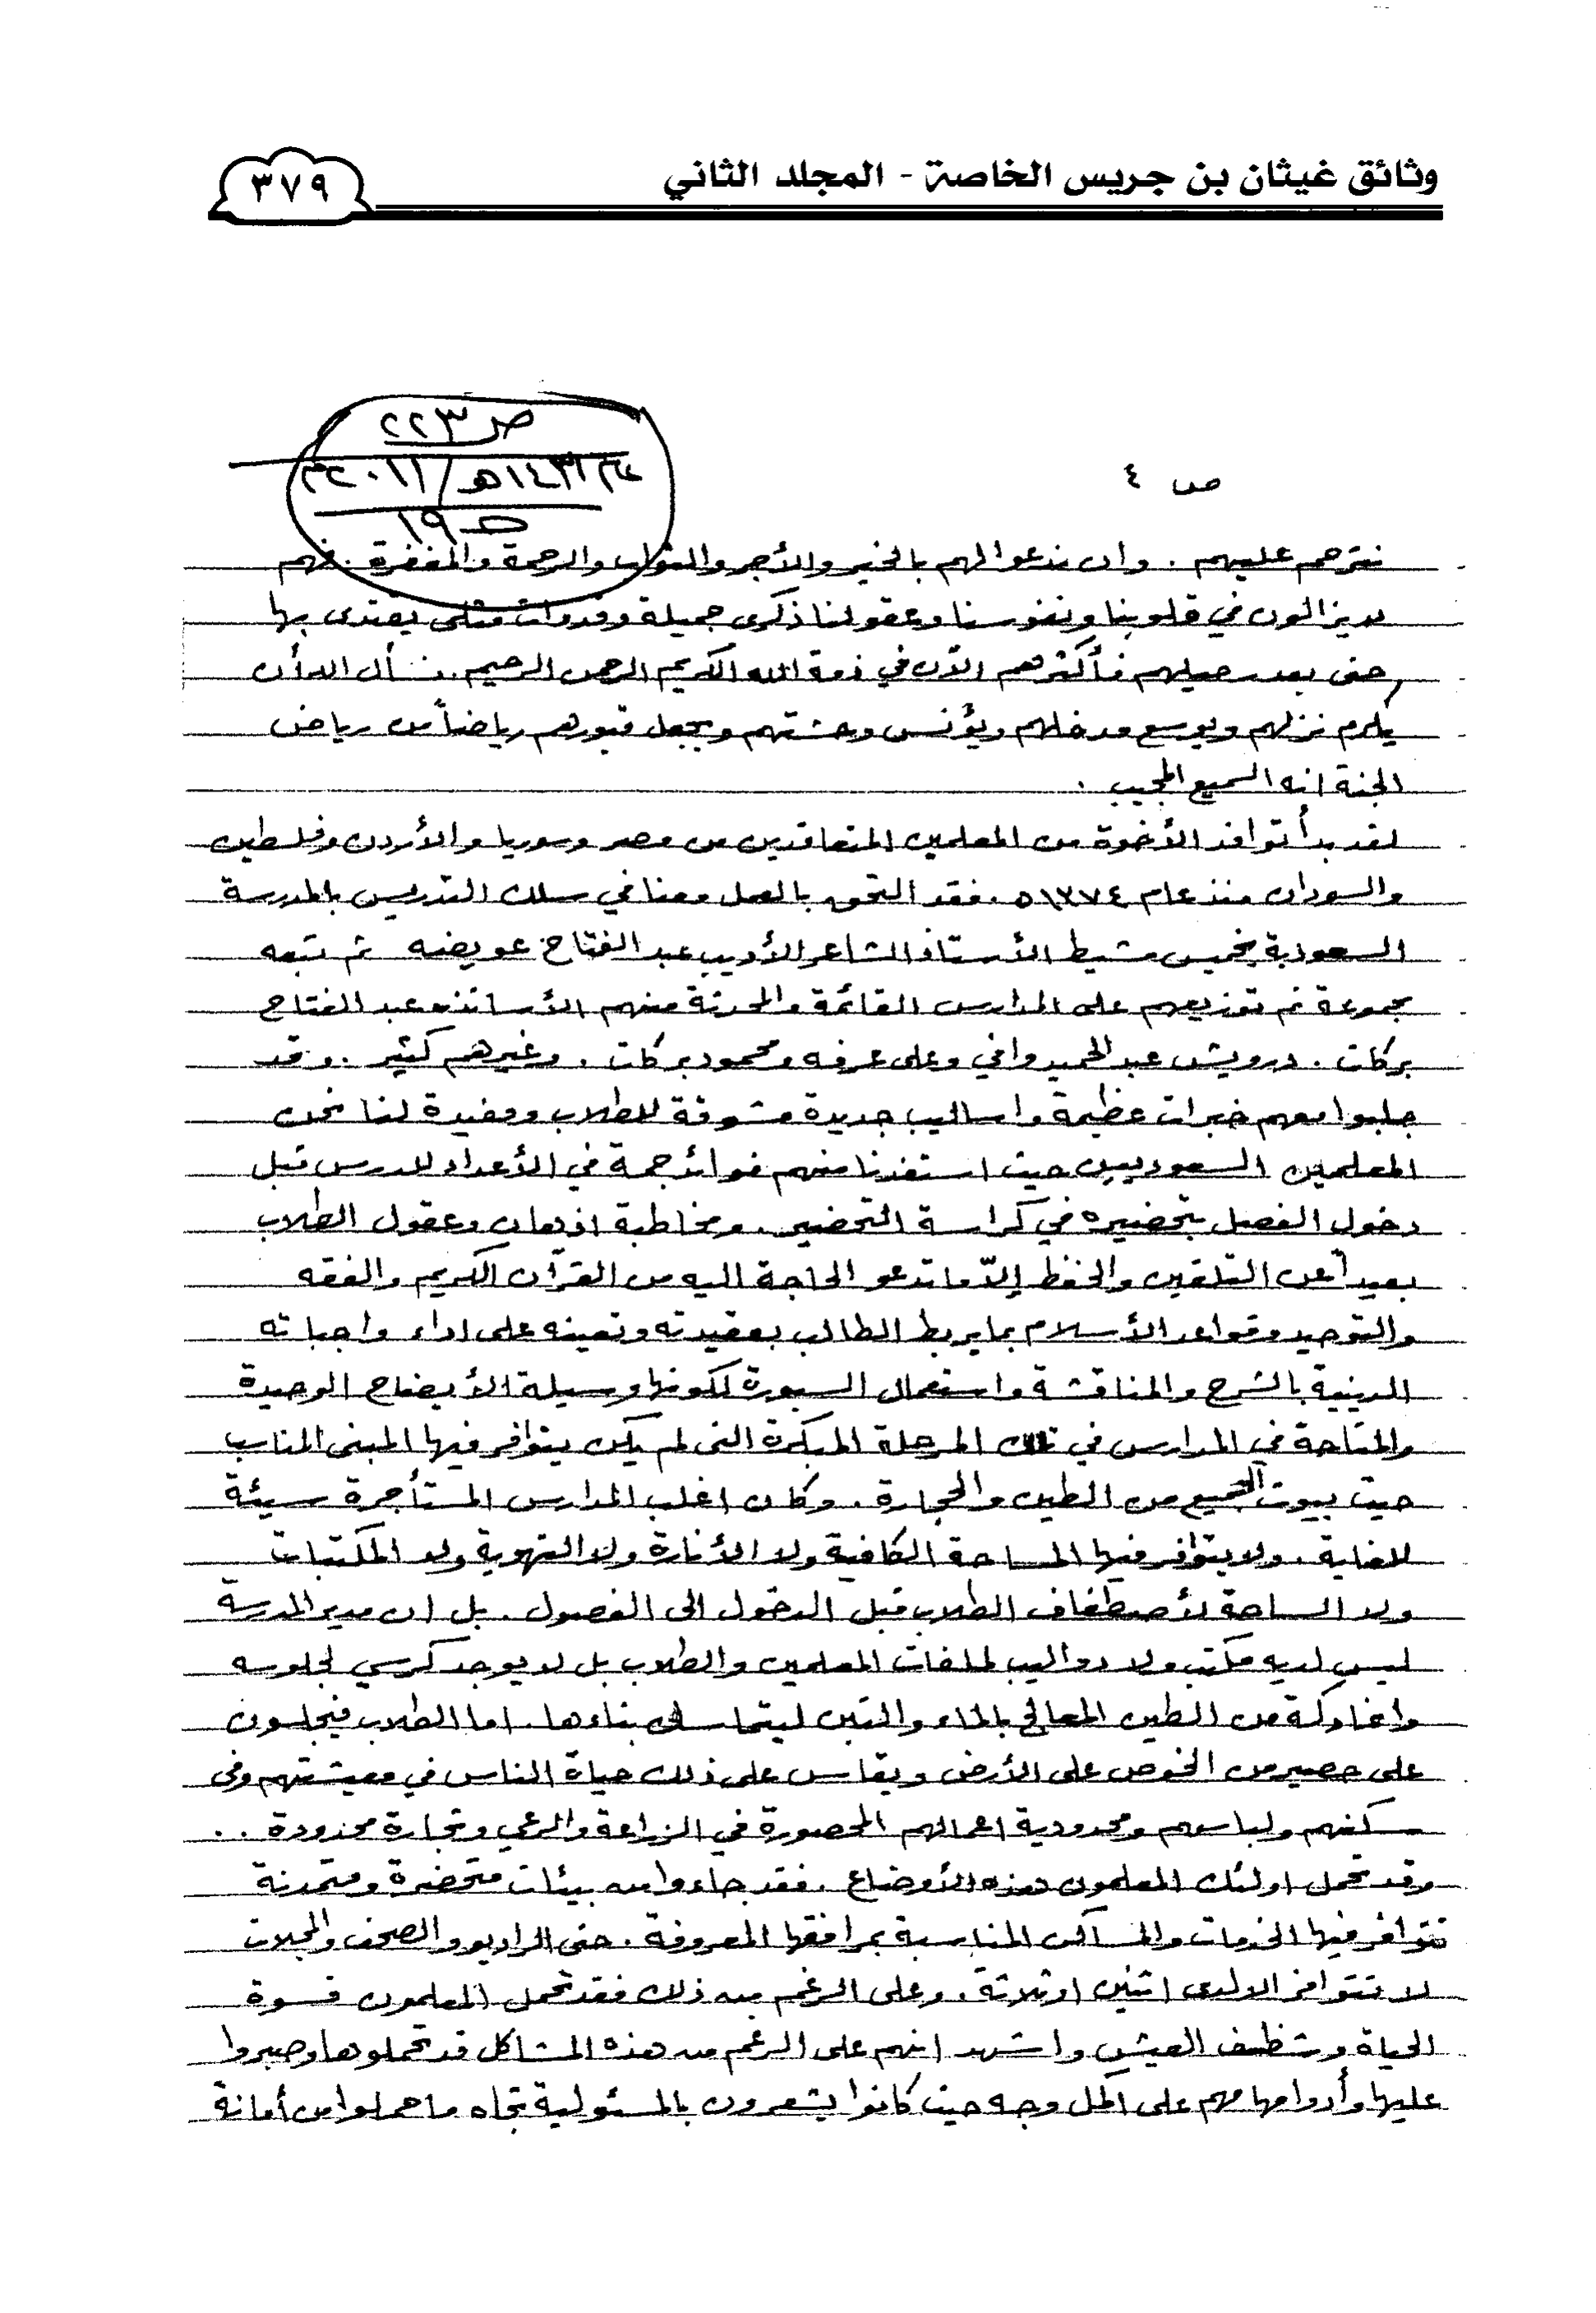 وثائق غيثان بن جريس الخاصة - المجلد الثاني
٣٧٩
ص ٢٢٣
١٤٣٢هـ / ٢٠١١م
ص ١٩
ص ٤
نترحم عليهم . وان ندعوا لهم بالخير والأجر والثواب والرحمة والمغفرة . فهم
لايزالون في قلوبنا ونفوسنا وعقولنا ذكرى جميلة وقدوات مثلى يقتدى بها
حتى بعد رحيلهم فأكثرهم الآن في ذمة الله الكريم الرحمن الرحيم . نسأل الله أن
يكرم نزلهم ويوسع مدخلهم ويؤنس وحشتهم ويجعل قبورهم رياضاً من رياض
الجنة انه السميع المجيب .
لقد بدأ توافد الأخوة من المعلمين المتعاقدين من مصر وسوريا والأردن وفلسطين
والسودان منذ عام ١٣٧٤هـ . فقد التحق بالعمل معنا في سلك التدريس بالمدرسة
السعودية بخميس مشيط الأستاذ الشاعر الأديب عبد الفتاح عويضه ثم تبعه
مجموعة تم توزيعهم على المدارس القائمة والمحدثة منهم الأساتذه عبد الفتاح
بركات . درويش عبد الحميد وافي وعلى عرفه ومحمود بركات . وغيرهم كثير . وقد
جلبوا معهم خبرات عظيمة واساليب جديدة مشوقة للطلاب ومفيدة لنا نحن
المعلمين السعوديين حيث استفدنا منهم فوائد جمة في الأعداد للدرس قبل
دخول الفصل بتحضيره في كراسة التحضير . ومخاطبة اذهان وعقول الطلاب
بعيداً عن التلقين والحفظ إلاّ ما تدعو الحاجة اليه من القرآن الكريم والفقه
والتوحيد وقواعد الأسلام بما يربط الطالب بعقيدته وتعينه على اداء واجباته
الدينية بالشرح والمناقشة واستعمال السبورة لكونها وسيلة الأيضاح الوحيدة
والمتاحة في المدارس في تلك المرحلة المبكرة التى لم يكن يتوافر فيها المبنى المناسب
حيث بيوت الجميع من الطين والحجارة . وكان اغلب المدارس المستأجرة سيئة
للغاية . ولا يتوافر فيها المساحة الكافية ولا الأنارة ولا التهوية ولا المكتبات
ولا الساحة لأصطفاف الطلاب قبل الدخول الى الفصول . بل ان مدير المدرسة
ليس لديه مكتب ولا دواليب لملفات المعلمين والطلاب بل لا يوجد كرسي لجلوسه
وانما دكة من الطين المعالج بالماء والتبن ليتماسك بناءها . اما الطلاب فيجلسون
على حصير من الخوص على الأرض ويقاس على ذلك حياة الناس في معيشتهم وفى
سكنهم ولباسهم ومحدودية اعمالهم المحصورة في الزراعة والرعي وتجارة محدودة ..
وقد تحمل اولئك المعلمون هذه الأوضاع . فقد جاءوا من بيئات متحضرة ومتمدنة
تتوافر فيها الخدمات والمساكن المناسبة بمرافقها المعروفة . حتى الراديو والصحف والمجلات
لا تتوافر الا لدى اثنين او ثلاثة . وعلى الرغم من ذلك فقد تحمل المعلمون قسوة
الحياة وشظف العيش واشهد انهم على الرغم من هذه المشاكل قد تحملوها وصبروا
عليها وأدوا مهامهم على اكمل وجه حيث كانوا يشعرون بالمسئولية تجاه ما حملوا من أمانة